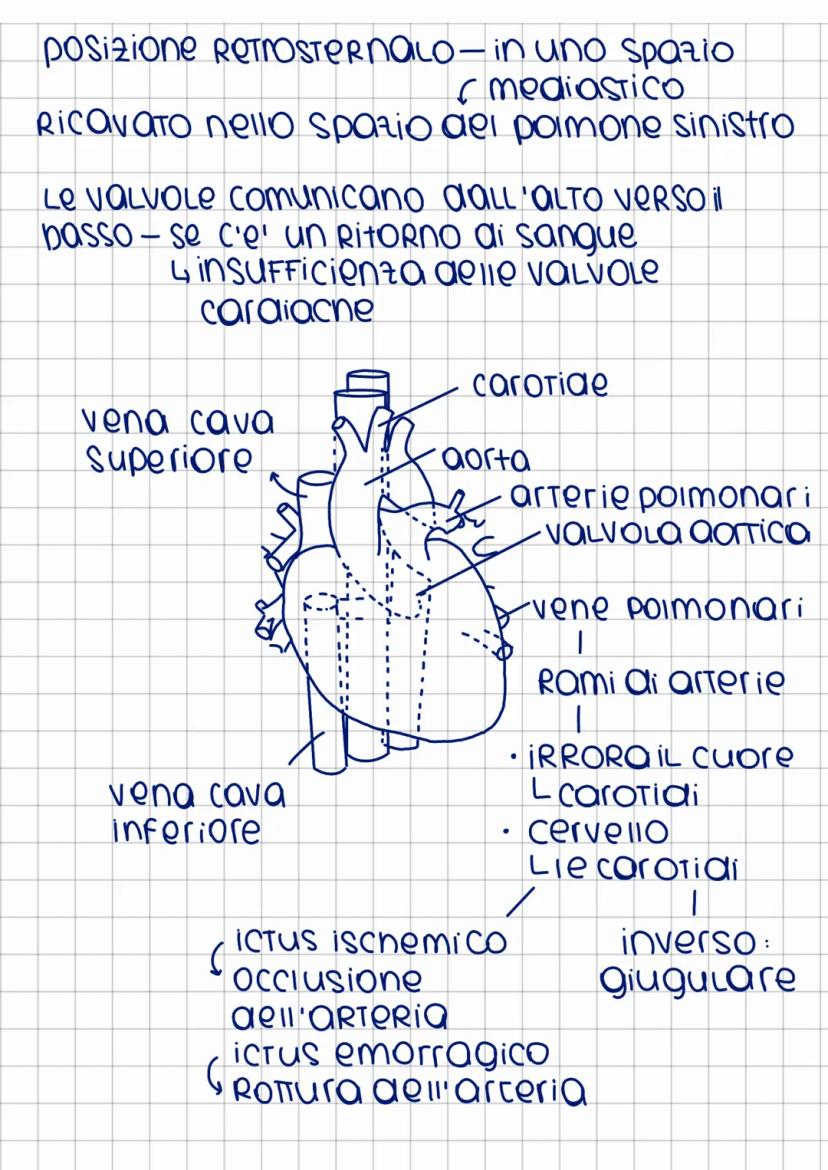 POSIZIONE RETROSTERNALO – IN UNO SPAZIO
MEDIASTICO
RICAVATO NELLO SPAZIO DEL POLMONE SINISTRO
LE VALVOLE COMUNICANO DALL'ALTO VERSO IL
BASSO – SE C'E' UN RITORNO DI SANGUE
↳ INSUFFICIENZA DELLE VALVOLE
CARDIACHE
CAROTIDE
VENA CAVA
SUPERIORE
AORTA
ARTERIE POLMONARI
VALVOLA AORTICA
VENE POLMONARI
RAMI DI ARTERIE
• IRRORA IL CUORE
CAROTIDI
VENA CAVA
INFERIORE
• CERVELLO
LE CAROTIDI
ICTUS ISCHEMICO
INVERSO:
OCCLUSIONE
GIUGULARE
DELL'ARTERIA
ICTUS EMORRAGICO
ROTTURA DELL'ARTERIA